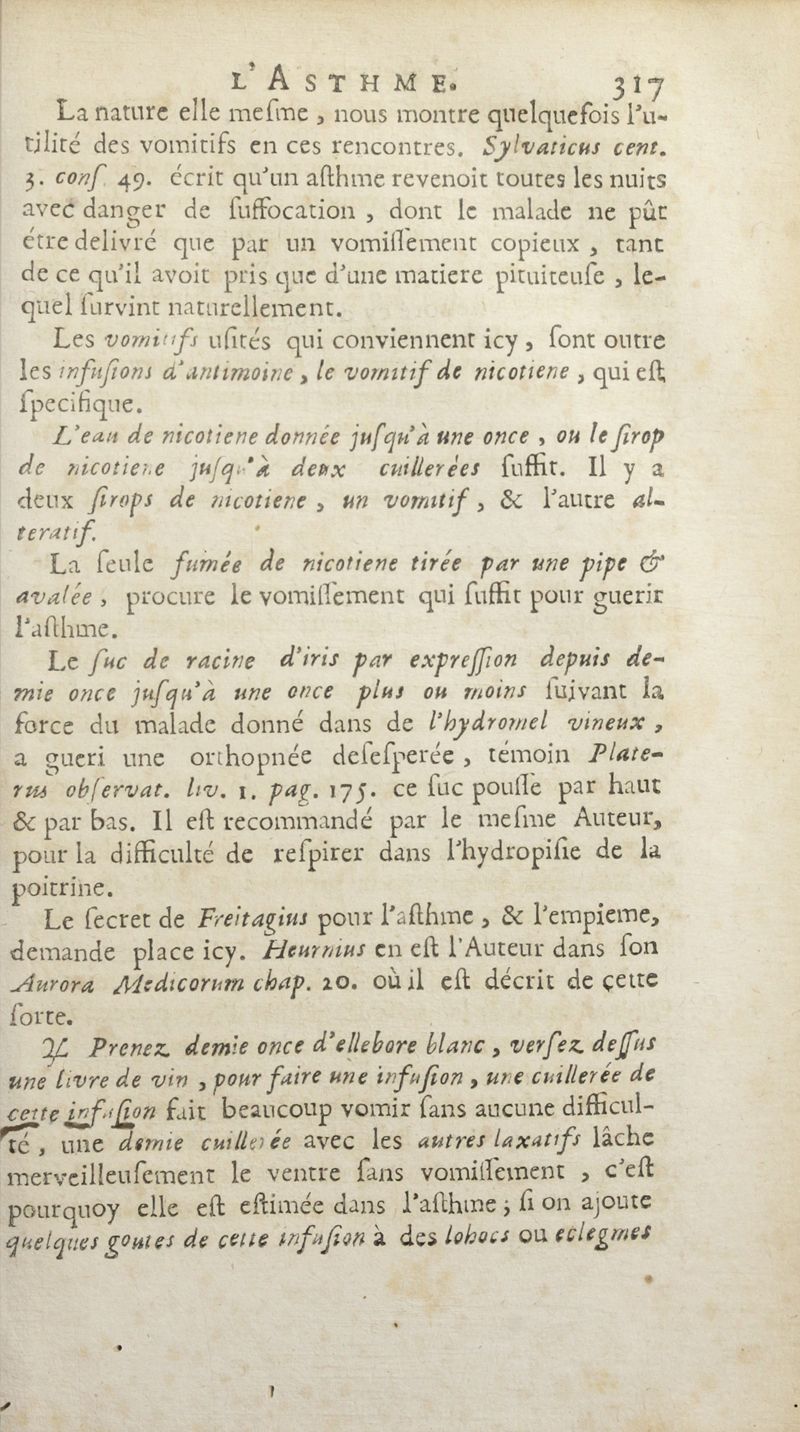 L'ASTHME. 317
La nature elle meſme , nous montre quelquefois l'u-
tilité des vomitifs en ces rencontres. Sylvaticus cent.
3. conſ. 49. écrit qu'un aſthme revenoit toutes les nuits
avec danger de ſuffocation , dont le malade ne pût
étre delivré que par un vomiſſement copieux , tant
de ce qu'il avoit pris que d'une matiere pituiteuſe , le-
quel ſurvint naturellement.
Les vomitifs uſités qui conviennent icy , ſont outre
les infuſions d'antimoine , le vomitif de nicotiene , qui eſt
ſpecifique.
L'eau de nicotiene donnée juſqu'à une once , ou le ſirop
de nicotiene juſqu'à deux cuillerées ſuffit. Il y a
deux ſirops de nicotiene , un vomitif , & l'autre al-
teratif.
La ſeule fumée de nicotiene tirée par une pipe &
avalée , procure le vomiſſement qui ſuffit pour guerir
l'aſthme.
Le ſuc de racine d'iris par expreſſion depuis de-
mie once juſqu'à une once plus ou moins ſuivant la
force du malade donné dans de l'hydromel vineux ,
a gueri une orthopnée deſeſperée , témoin Plate-
rus obſervat. liv. 1. pag. 175. ce ſuc pouſſe par haut
& par bas. Il eſt recommandé par le meſme Auteur,
pour la difficulté de reſpirer dans l'hydropiſie de la
poitrine.
Le ſecret de Freitagius pour l'aſthme , & l'empieme,
demande place icy. Heurnius en eſt l'Auteur dans ſon
Aurora Medicorum chap. 20. où il eſt décrit de çette
ſorte.
♃ Prenez demie once d'ellebore blanc , verſez deſſus
une livre de vin , pour faire une infuſion , une cuillerée de
cette infuſion fait beaucoup vomir ſans aucune difficul-
té , une demie cuillerée avec les autres laxatifs lâche
merveilleuſement le ventre ſans vomiſſement , c'eſt
pourquoy elle eſt eſtimée dans l'aſthme ; ſi on ajoute
quelques goutes de cette infuſion à des lohocs ou eclegmes